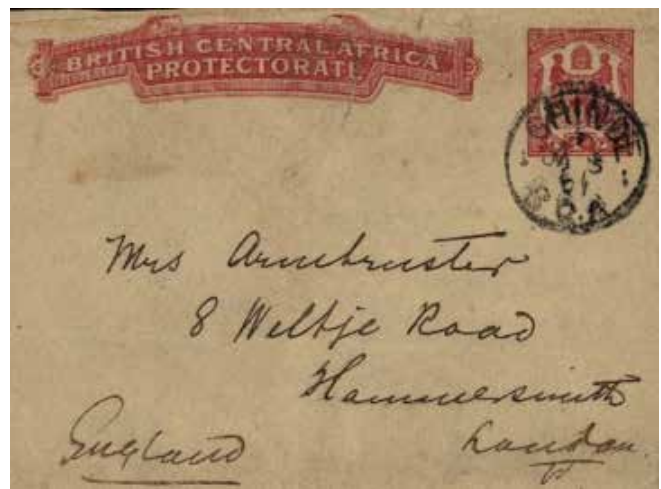 BRITISH CENTRAL AFRICA
PROTECTORATE
CHINDE
B.C.A
Mrs Armbruster
8 Weltje Road
Hammersmith
London
England